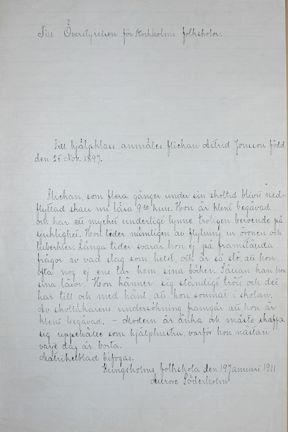 Till Överstyrelsen för Stockholms folkskolor.
Till hjälpklass anmäles flickan Astrid Jonsson född
den 25 Nov. 1897.
Flickan, som flera gånger under sin skoltid blivit ned-
flyttad skall nu läsa kurs. Hon är klent begåvad
och har ett mycket underligt lynne troligen beroende på
sjuklighet. Hon lider nämligen av flytning ur öronen och
Långa tider svarar hon ej på framställda
frågor av vad slag som helst, och är så slö att hon
ofta nog ej ens tar hem sina böcker. Sällan kan hon
sina läxor. Hon känner sig ständigt trött och det
har till och med hänt att hon somnat i skolan.
Av skolläkarens undersökning framgår att hon är
klent begåvad. - Modern är änka och måste skaffa
sig uppehälle som hjälphustru, varför hon nästan
varje dag är borta.
Matrikelblad bifogas.
Kungsholms folkskola den 19 Januari 1911
Aurore Söderholm